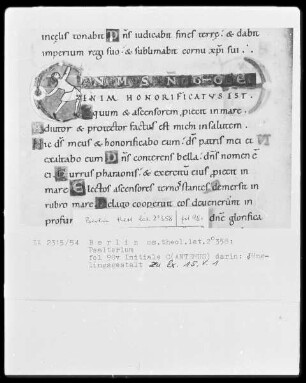 in celis tonabit Dn̄s iudicabit fines terrę· & dabit
imperium regi suo· & sublimabit cornu xp̄i sui·
CANTEMVS DN̄O GLO
ENIM HONORIFICATVS EST·
equum & ascensorem, piecit in mare·
Adiutor & protector factus est mihi in salutem·
Hic ds̄ meus & honorificabo eum· ds̄ patris mei &
exaltabo eum Dn̄s conterens bella· dn̄s nomen ē
ei· Currus pharaonis· & exercitū eius, piecit in
mare Electos ascensores ternos stantes demersit in
rubro mare pelago cooperuit eos deuenerunt in
profun
fol 98v
dn̄e glorifica
LA 2315/54 Berlin ms.theol.lat.2°358:
Psalterium
fol 98v Initiale C(ANTEMUS) darin: Jüng-
lingsgestalt Zu Ex. 15 V. 1